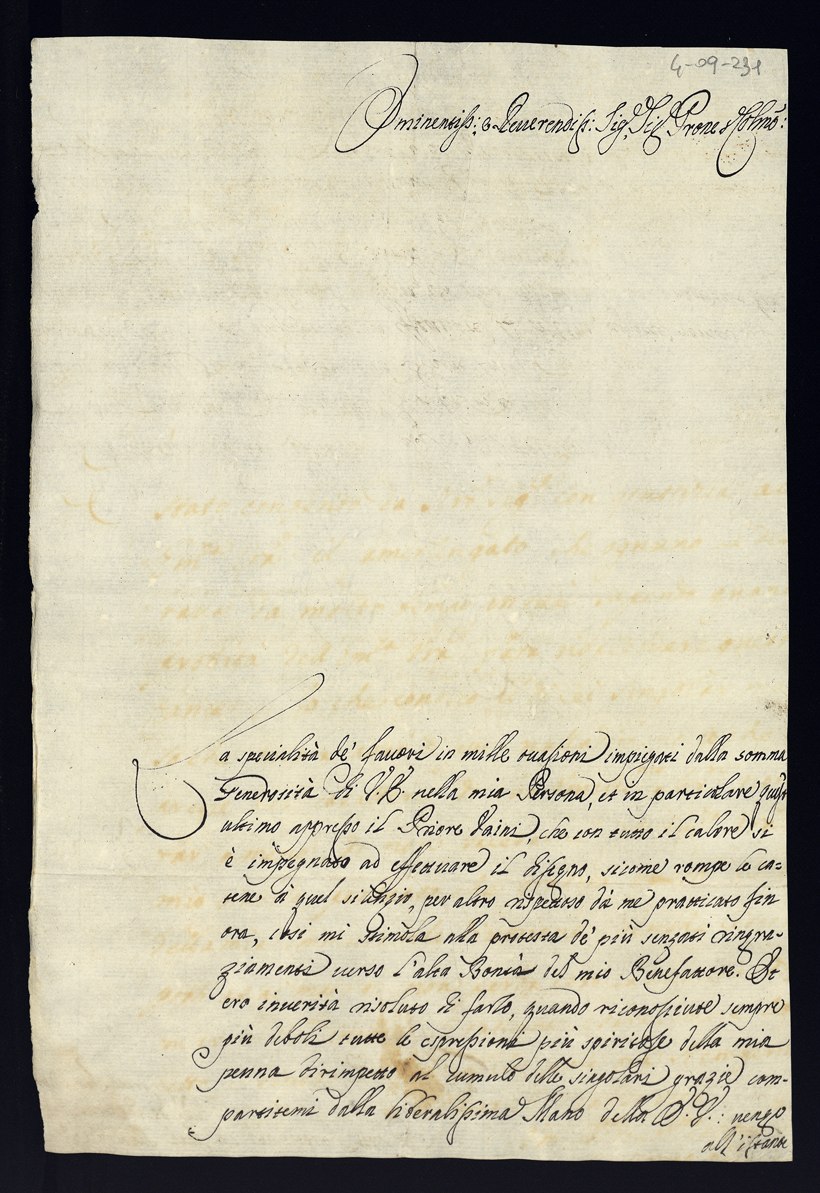 4-09-231
Eminentiss: e Reuerendiss: Sig. Sig. Prone Colmo:
La specialità de' fauori in mille occasioni impiegati dalla somma
Generosità di V. E. nella mia Persona, et in particolare quest'
ultimo appresso il Priore Vaini, che con tutto il calore si
è impegnato ad effettuare il disegno, sicome rompe le ca-
tene à quel silenzio, per altro rispettoso dà me pratticato fin
ora, cosi mi stimola alla protesta de' più sensati ringra-
ziamenti uerso l'alta Bontà del mio Benefattore. Et
ero inuerità risoluto di farlo, quando riconosciute sempre
più deboli tutte le espressioni più spiritose della mia
penna dirimpetto al cumulo delle singolari grazie com-
partitemi dalla liberalissima Mano della E. V.: uengo
all'istante